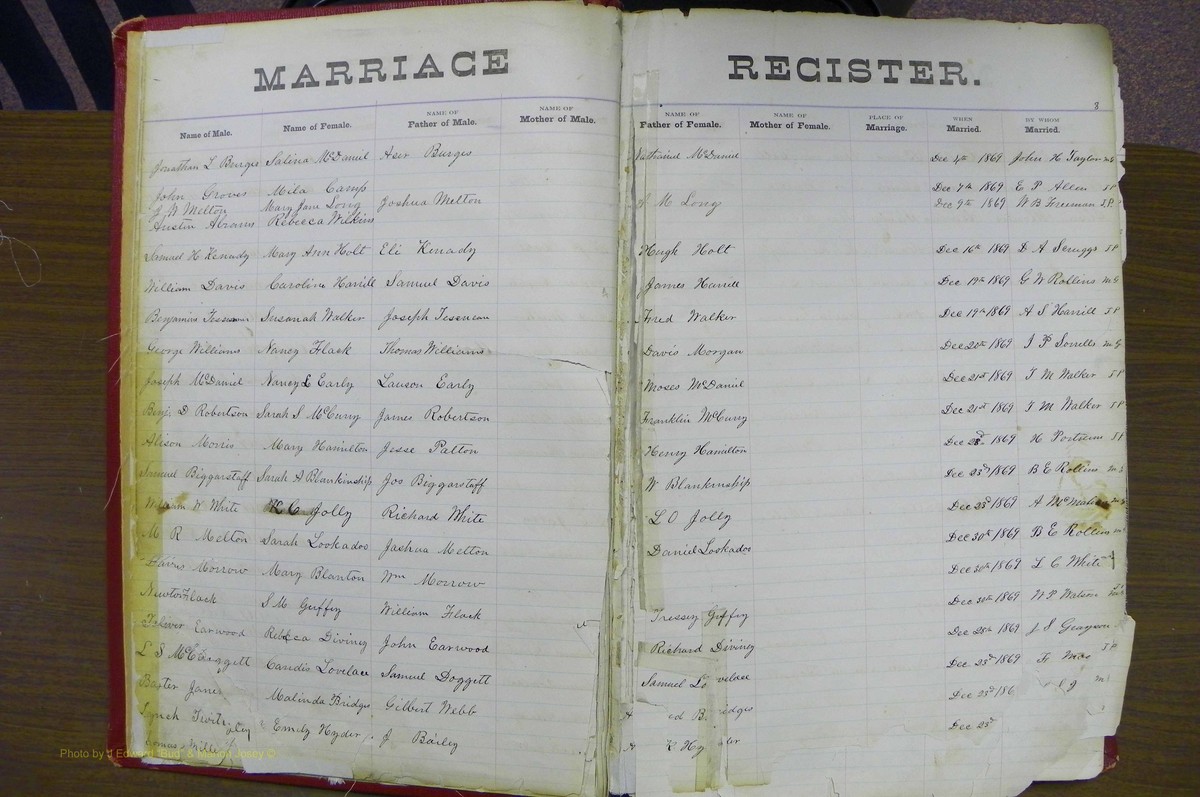 MARRIAGE REGISTER.
8
Name of Male. Name of Female. NAME OF Father of Male. NAME OF Mother of Male. NAME OF Father of Female. NAME OF Mother of Female. PLACE OF Marriage. WHEN Married. BY WHOM Married.
Jonathan L Burges Salina McDaniel Aser Burges Nathaniel McDaniel Dec 4th 1869 John H Taylor M G
John Groves Mila Camp Dec 7th 1869 E P Allen J P
J W Melton Mary Jane Long Joshua Melton M Long Dec 9th 1869 W B Freeman J P
Austin Abrams Rebecca Wilkins
Samuel H Kenady Mary Ann Holt Eli Kenady Hugh Holt Dec 16th 1869 D A Scruggs J P
William Davis Caroline Harrill Samuel Davis James Harrill Dec 19th 1869 G W Rollins M G
Benjamin Susanah Walker Joseph Tesseneau Fred Walker Dec 19th 1869 A S Harrill J P
George Williams Nancy Flack Thomas Williams Davis Morgan Dec 20th 1869 J P Sorrells M G
Joseph McDaniel Nancy L Early Lauson Early Moses McDaniel Dec 21st 1869 T M Walker J P
Benj. D Robertson Sarah S McCurry James Robertson Franklin McCurry Dec 21st 1869 T M Walker J P
Alison Morris Mary Hamilton Jesse Patton Henry Hamilton Dec 1869 H J P
Samuel Biggarstaff Sarah A Blankinship Jos Biggarstaff W Blankinship Dec 23d 1869 B E Rollins M G
William W White C Jolly Richard White L O Jolly Dec 23d 1869 A
M R Melton Sarah Lookados Jashua Melton Daniel Lookados Dec 30th 1869 B E Rollins
Morrow Mary Blanton Wm Morrow Dec 30th 1869 L C White
Newton Flack S M Guffey William Flack Guffey Dec 30th 1869 W P Watson
Earwood Rebecca Diviney John Earwood Richard Diviney Dec 28th 1869 J S Grayson
L S Doggett Candis Lovelace Samuel Doggett Samuel Lovelace Dec 23d 1869
Baxter Jane Malinda Bridges Gilbert Webb ed Bridges Dec 23d 186
Lynch Emily Hyder J Bailey Dec 23d
Photo by J Edward "Bud" & Miriam Josey ©